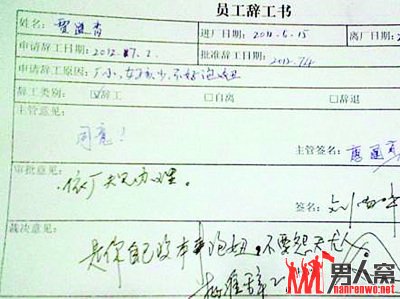 员工辞工书
姓名 贾进青 进厂日期: 2011.5.15 离厂日期: 2
申请辞工日期: 2012.7.1. 批准辞工日期: 2012.7.4
申请辞工原因: 厂小,女孩少,不好泡妞
辞工类别: ☑辞工 □自离 □辞退
主管意见:
同意!
主管签名:
审批意见:
依厂规办理。
签名:
裁决意见:
是你自己没本事泡妞,不要怨天尤人
批准辞工
男人窝
nanrenwo.net